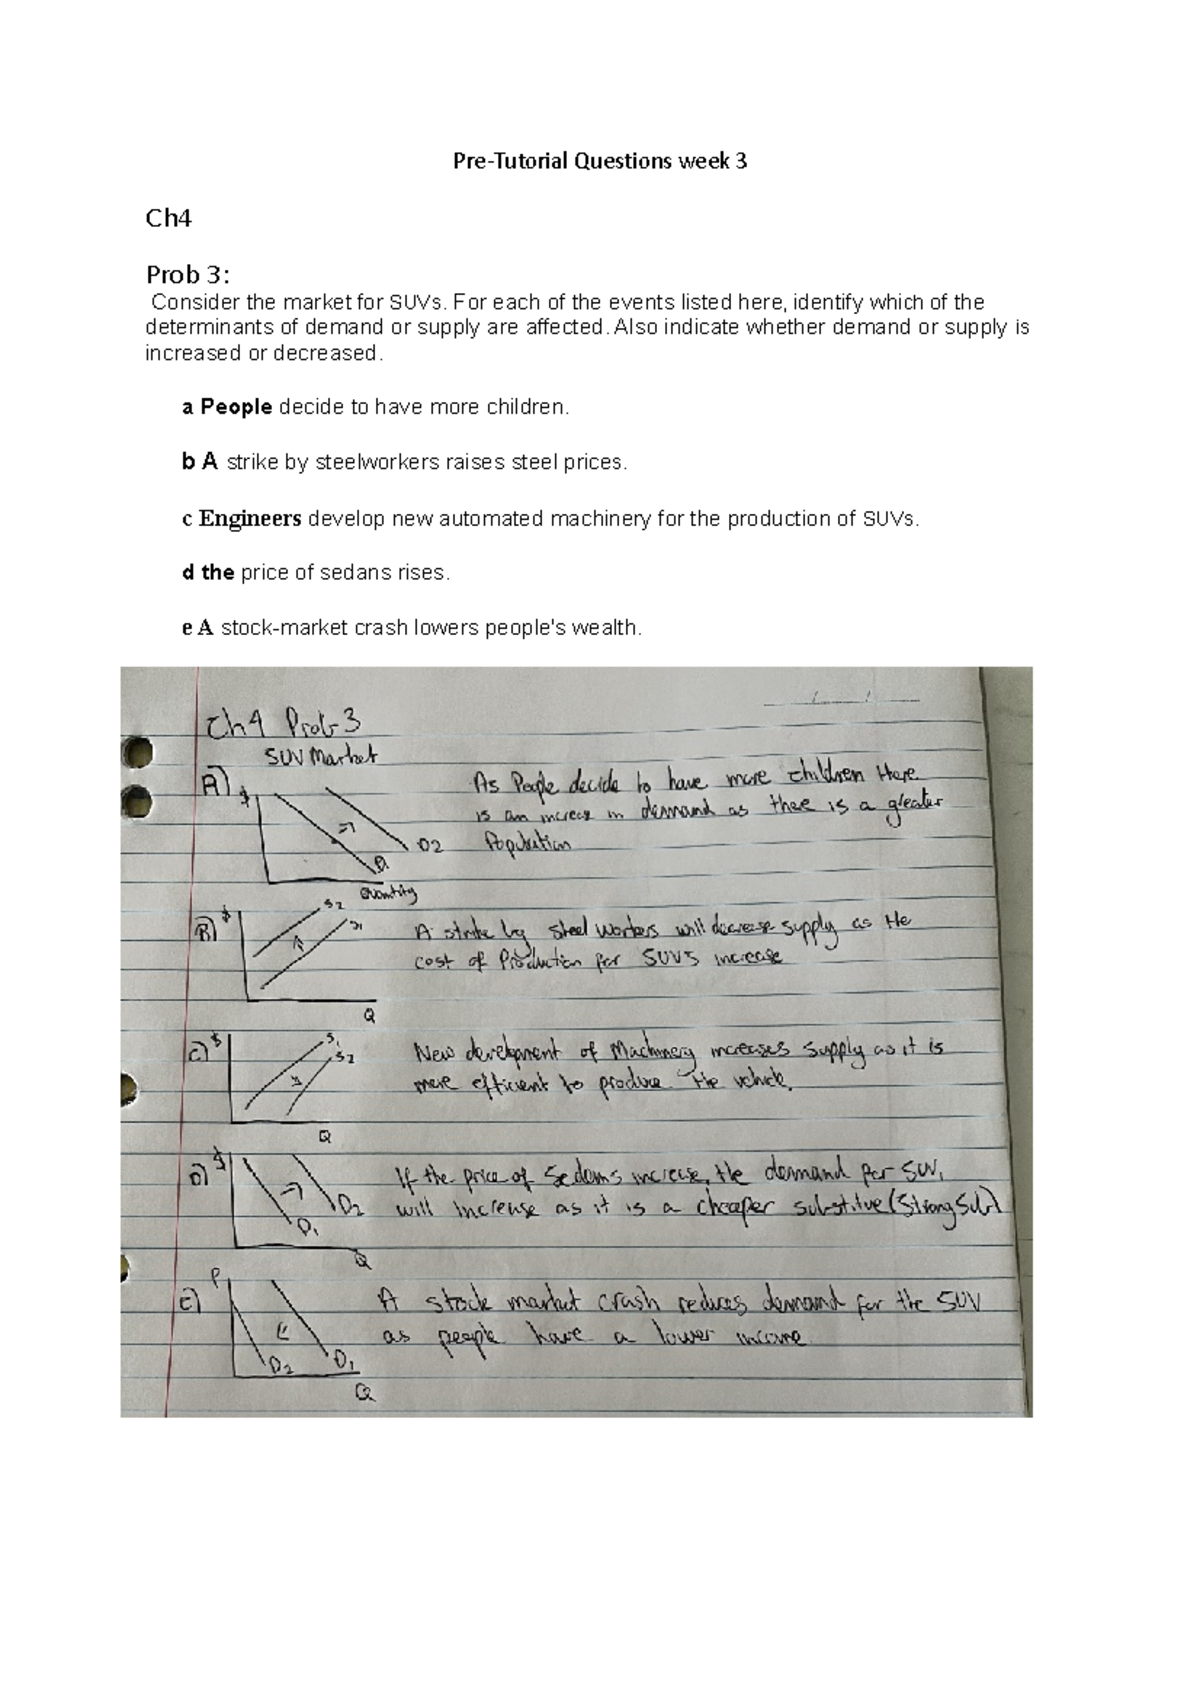 Pre-Tutorial Questions week 3
Ch4
Prob 3:
Consider the market for SUVs. For each of the events listed here, identify which of the
determinants of demand or supply are affected. Also indicate whether demand or supply is
increased or decreased.
a People decide to have more children.
b A strike by steelworkers raises steel prices.
c Engineers develop new automated machinery for the production of SUVs.
d the price of sedans rises.
e A stock-market crash lowers people's wealth.
Ch4 Prob 3
SUV Market
A)
$
D2
D1
Quantity
As People decide to have more children there
is an increas in demand as there is a greater
Population
B)
$
S2
S1
Q
A strike by steel workers will decrease supply as the
cost of Production for SUVS increase
C)
$
S1
S2
Q
New development of Machinery increases supply as it is
more efficient to produce the vehicle.
D)
$
D2
D1
Q
If the price of Sedans increase, the demand for SUV,
will increase as it is a cheaper substitue (Strong Sub)
E)
P
D2
D1
Q
A stock market crash reduces demand for the SUV
as people have a lower income